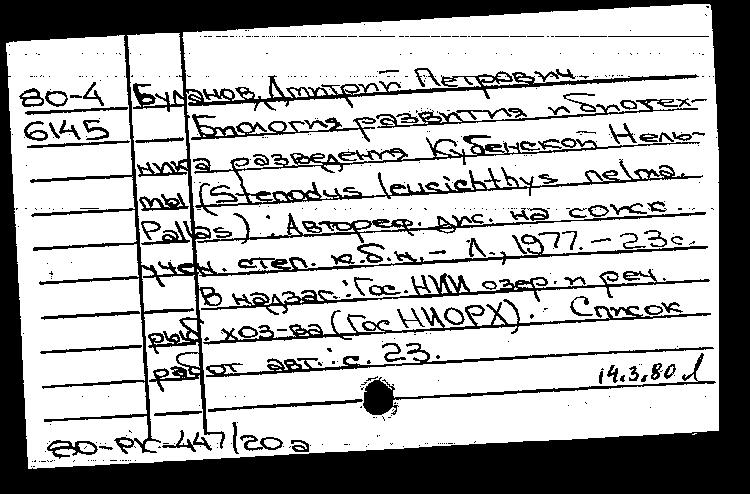 80-4 Буланов, Дмитрий Петрович.
6145 Биология развития и биотех-
ника разведения Кубенской Нель-
мы (Stenodus leucichthys nelma
Pallas): Автореф. дис. на соиск.
учен. степ. к.б.н. - Л., 1977. - 23 с.
В надзаг.: Гос. НИИ озер. и реч.
рыб. хоз-ва (ГосНИОРХ). Список
работ авт.: с. 23.
14.3.80 Л
80-РК-447/20а